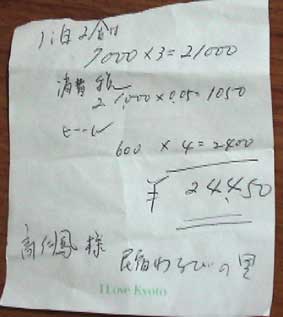 1泊2食
7000×3=21000
消費税
21,000×0.05=1050
ビール
600 × 4 = 2400
¥ 24,450
様 民宿わらびの里
I Love Kyoto